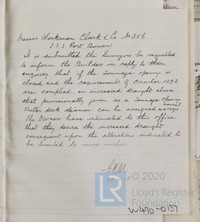 Messrs Workman Clark & Co. No 356
S.S. Port Bowen
It is submitted the Surveyors be requested
to inform the Builders in reply to their
enquiry that if the tonnage opening is
closed and the requirements of Circular 1492
are complied an increased draught above
that provisionally given as a tonnage opening
Shelter deck steamer can be assigned except
The Owners have intimated to this office
that they desire the increased draught
consequent upon the alterations indicated to
be limited to
© 2020
Lloyd's Register
Foundation
W470-0137